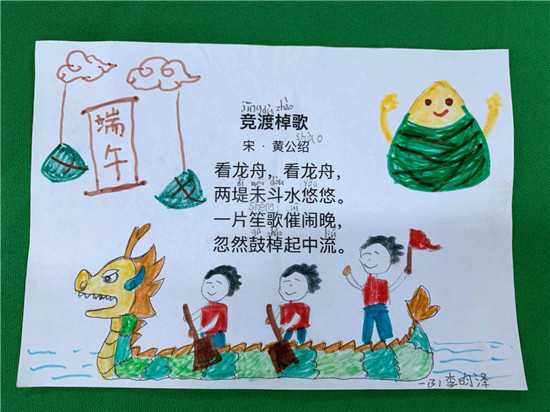 端午
jìng dù zhào
竞渡棹歌
宋 · 黄公绍
看龙舟，看龙舟，
两堤未斗水悠悠。
sheng
一片笙歌催闹晚，
忽然鼓棹起中流。
一(3) 李昀泽